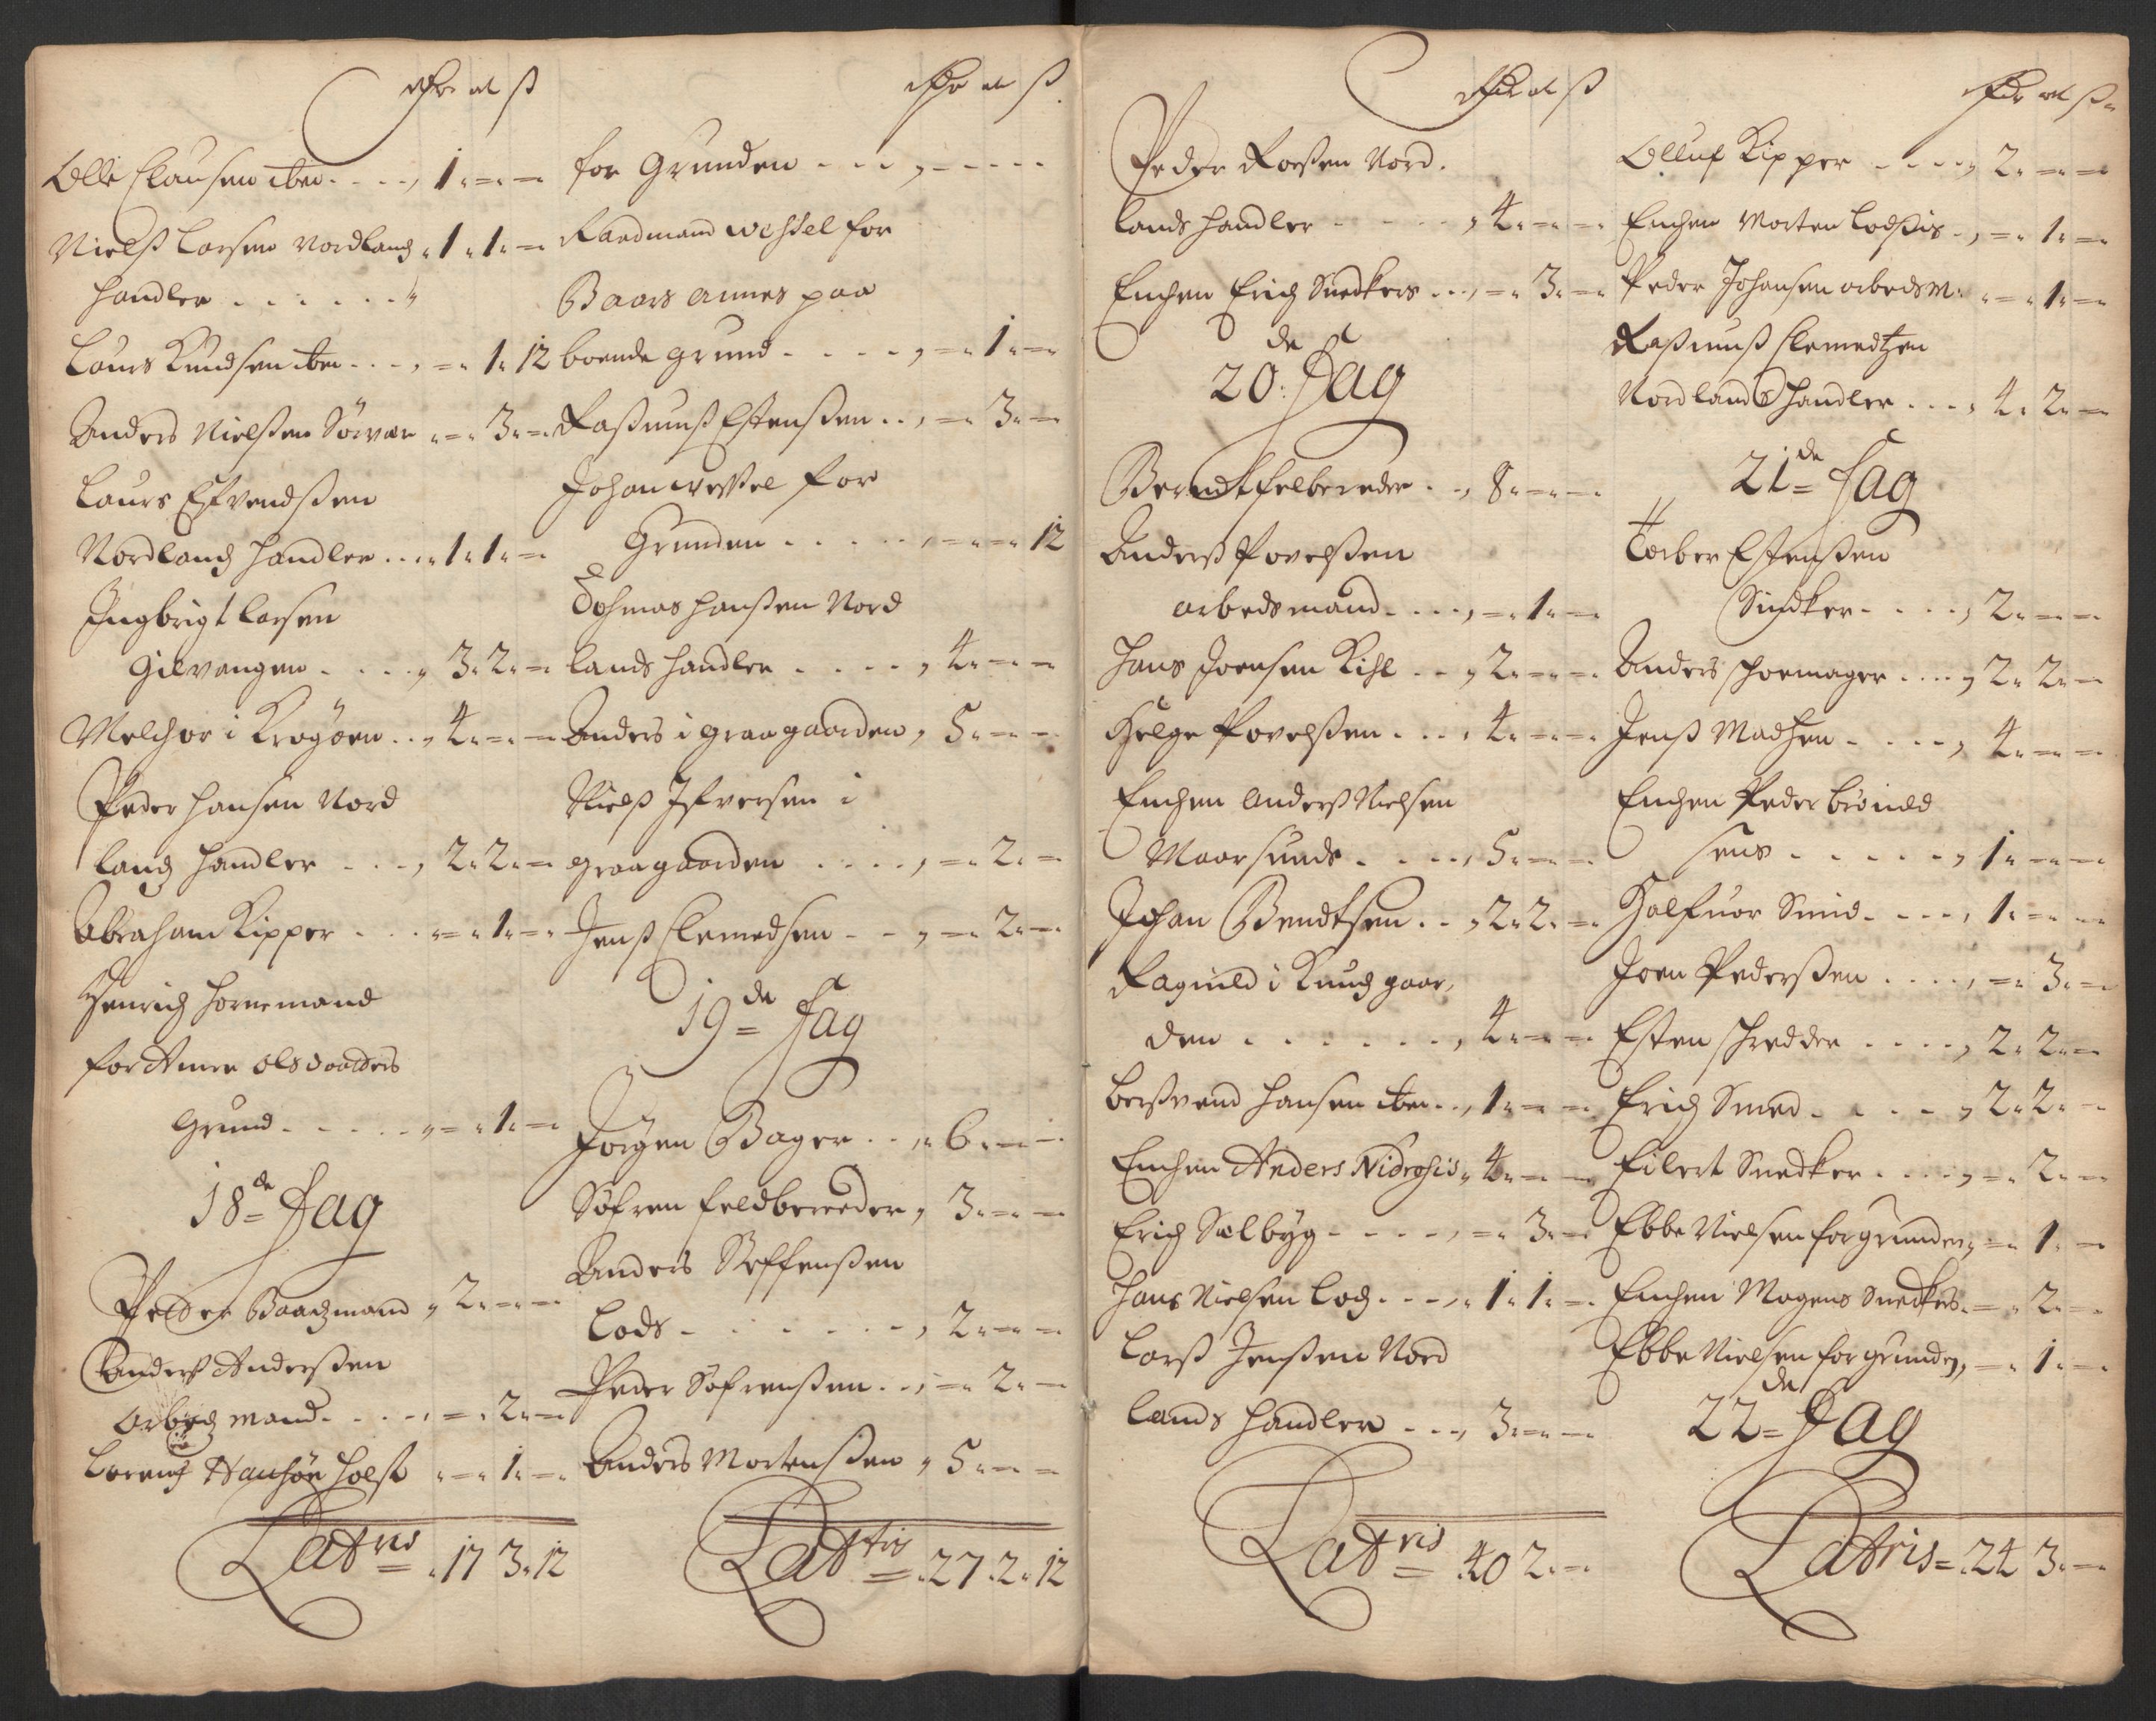 Rdr mk ß
Olle Clausen iben . . . , 1 " – " –
Nielß Larsen Nordlandz " 1 " 1 " –
handler . . . . . .
Laurs Knudsen iben . . . , – " 1 " 12
Anders Nielßen Sörvær " – " 3 " –
Laurs Efvendßen
Nordlandz handler . . . " 1 " 1 " –
Ingbrigt Larsen
Gilvangen . . . . , 3 " 2 " –
Melchor i Krogöen . . , 4 " – " –
Peder Hansen Nord
landz handler . . . , 2 " 2 " –
Abraham Kipper . . . " – " 1 " –
Henrich Hornemand
for Anne Olsdaatters
Grund . . . . . , – " 1 " –
18de Fag
Petter Baadzmand , 2 " – " –
Anderß Anderßen
Arbedz mand . . . . , – " 2 " –
Lorentz Hansön Holst " – " 1 " –
Latris = " 17 3 " 12
Rdr mk ß
for Grunden . . . , – – – –
Raadmand Wessel for
Baars Annes paa
boende grund . . . . , – " 1 " –
Raßmuß Estenßen . . , – " 3 " –
Johan Wessel for
Grunden . . . . . , – " – " 12
Tohmas Hanßen Nord
lands handler . . . . , 4 " – " –
Anders i Graagaarden , 5 " – " –
Nielß Ifversen i
graagaarden . . . . , – " 2 " –
Jenß Clemedsen . . , – " 2 " –
19de Fag
Jörgen Bager . . , " 6 " – " –
Söfren Feldbereder , 3 " – " –
Anders Steffenßen
Lods . . . . . . , 2 " – " –
Peder Söfrenßen . . , – " 2 " –
Anders Mortenßen , 5 " – " –
Lattris = " 27 " 2 " 12
Rdr mk ß
Peder Roeßen Nord.
lands handler . . . . , 4 " – " –
Enchen Erich Snedkers . . , – " 3 " –
20de Fag
Berendt Felbereder . , 8 " – " –
Anderß Povelßen
arbedsmand . . . , – " 1 " –
Hans Joensen Kihl . . , 2 " – " –
Helge Povelßen . . . , 4 " – " –
Enchen Anderß Nielsen
Maarsunds . . . , 5 " – " –
Johan Bendtsen . . , 2 " 2 " –
Ragnild i Knudz gaar,
den . . . . . . , 4 " – " –
Berßvend Hansen iben . . , 1 " – " –
Enchen Anders Nidrosis , 4 " – " –
Erich Sælbyg . . . . , – " 3 " –
Hans Nielsen Lodz . . . , " 1 " 1 " –
Larß Jenßen Nord
lands handler . . . , 3 " – " –
Latris = " 40 2 " –
Rdr mk ß
Olluf Kipper . . . . , 2 " – " –
Enchen Morten Lodßis . , – " 1 " –
Peder Johansen arbedsm: " – " 1 " –
Raßmuß Clemedtzen
Nordlands handler . . . , 4 " 2 " –
21de Fag
Torber Estenßen
Snedker . . . . , 2 " – " –
Anders Schoemager . . . , 2 " 2 " –
Jenß Madsen . . . . , 4 " – " –
Enchen Peder Brönild
sens . . . . . . , 1 " – " –
Halfuor Smid . . . . , 1 " – " –
Joen Pederßen . . . . , – " 3 " –
Esten Schredder . . . . , 2 " 2 " –
Erich Smed . . . . , 2 " 2 " –
Eilert Snedker . . . . , – " 2 " –
Ebbe Nielsen for grunden , – " 1 " –
Enchen Mogens Snedkers . – " 2 " –
Ebbe Nielsen for grunden , – " 1 " –
22de Fag
Latris = " 24 3 " –